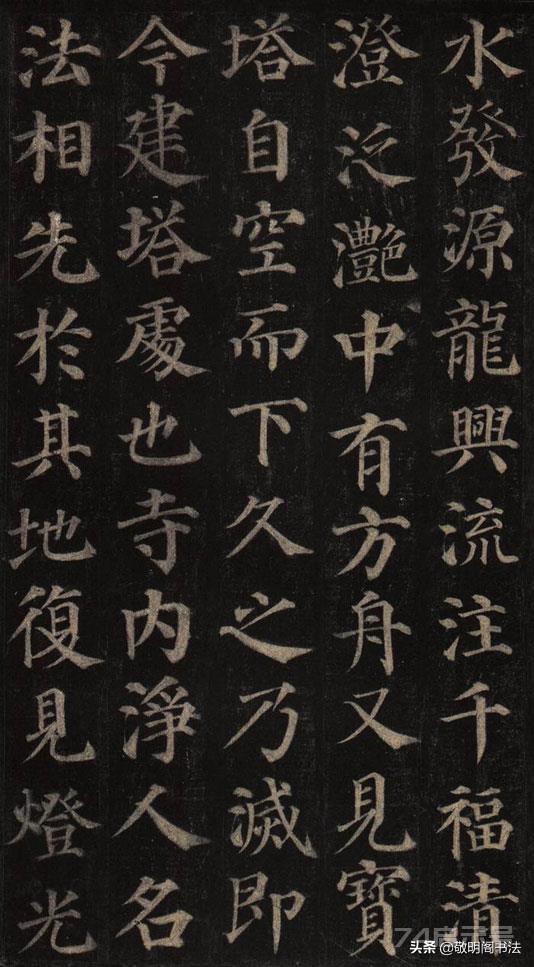 水發源龍興流注千福清
澄泛灔中有方舟又見寶
塔自空而下久之乃滅即
今建塔處也寺内淨人名
法相先於其地復見燈光
头条 @敬明阁书法